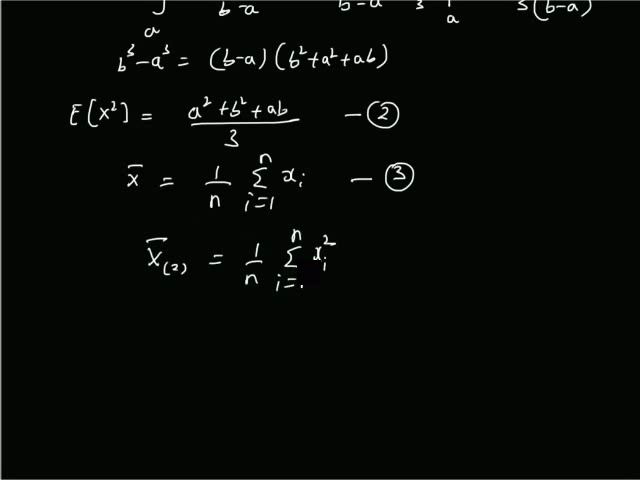 ∫ₐ b-a b-a 3 | a 3(b-a)
b³-a³ = (b-a) (b²+a²+ab)
E[X²] = (a²+b²+ab)/3 — ②
x̄ = 1/n Σ_{i=1}^{n} xᵢ — ③
X̄₍₂₎ = 1/n Σ_{i=.}^{n} xᵢ²